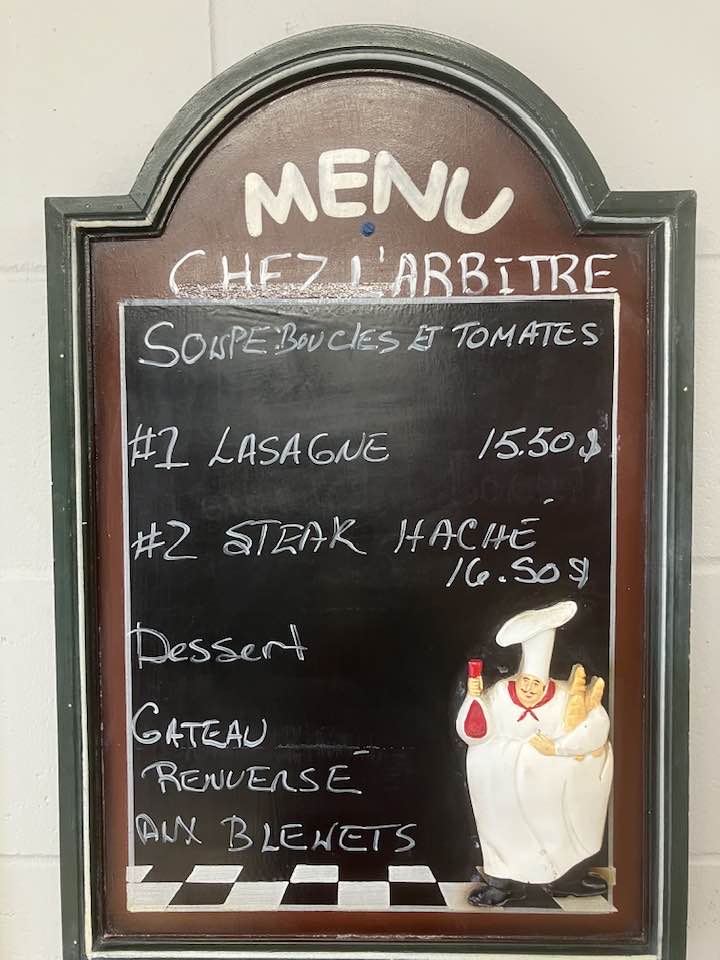 MENU
CHEZ L'ARBITRE
SOUPE: BOUCLES ET TOMATES
#1 LASAGNE 15.50$
#2 STEAK HACHÉ
16.50$
Dessert
GATEAU
RENVERSÉ
AUX BLEUETS